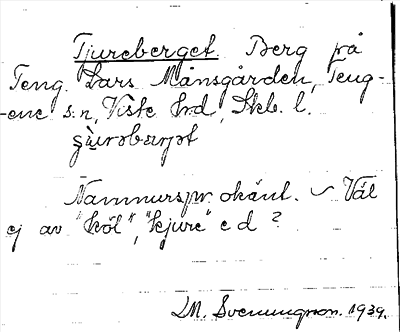 Tjureberget. Berg på
Teng. Lars Månsgården, Teng-
-ene s:n, Viste hrd, Skb. l.
Namnurspr. okänt. – Väl
ej av "köl", "kjure" e d ?
M. Svenungsson. 1939.